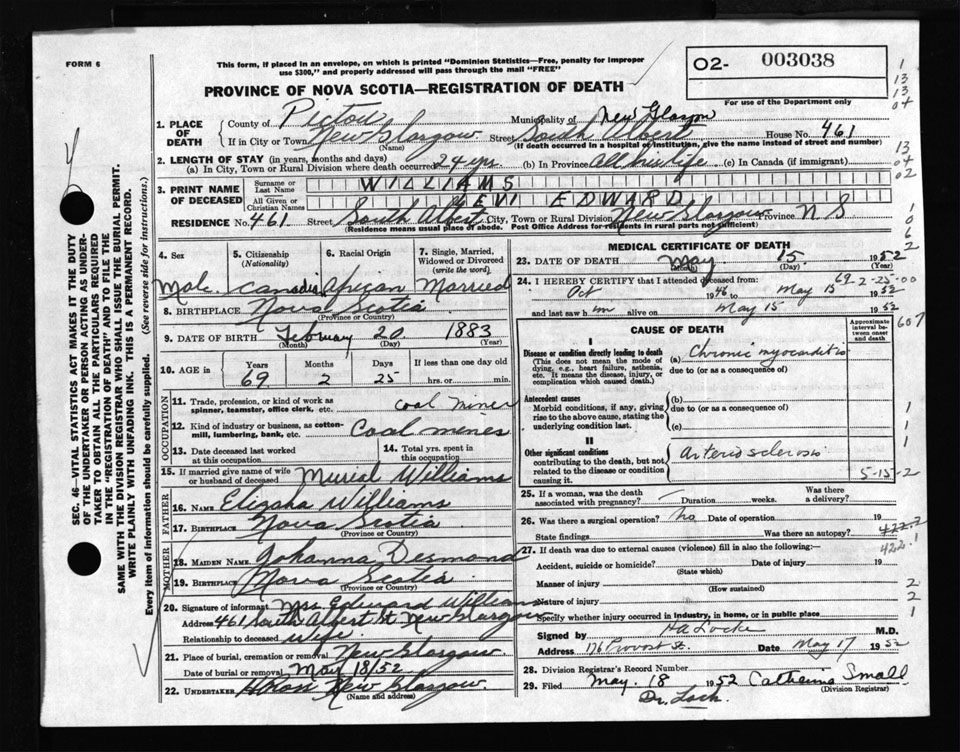 FORM 6
This form, if placed in an envelope, on which is printed "Dominion Statistics—Free, penalty for improper
use $300," and properly addressed will pass through the mail "FREE"
O2- 003038
For use of the Department only
PROVINCE OF NOVA SCOTIA—REGISTRATION OF DEATH
1. PLACE OF DEATH
County of Pictou Municipality of New Glasgow
If in City or Town New Glasgow (Name) Street South Albert House No. 461
(If death occurred in a hospital or institution, give the name instead of street and number)
2. LENGTH OF STAY (in years, months and days)
(a) In City, Town or Rural Division where death occurred 24 yrs. (b) In Province All his life (c) In Canada (if immigrant)
3. PRINT NAME OF DECEASED
Surname or Last Name WILLIAMS
All Given or Christian Names LEVI EDWARD
RESIDENCE No. 461 Street South Albert City, Town or Rural Division New Glasgow Province N. S
(Residence means usual place of abode. Post Office Address for residents in rural parts not sufficient)
4. Sex Male
5. Citizenship (Nationality) Canadian
6. Racial Origin African
7. Single, Married, Widowed or Divorced (write the word) Married
8. BIRTHPLACE Nova Scotia
(Province or Country)
9. DATE OF BIRTH February 20 1883
(Month) (Day) (Year)
10. AGE in Years 69 Months 2 Days 25 If less than one day old hrs. or min.
OCCUPATION
11. Trade, profession, or kind of work as spinner, teamster, office clerk, etc. coal miner
12. Kind of industry or business, as cotton-mill, lumbering, bank, etc. Coal mines
13. Date deceased last worked at this occupation
14. Total yrs. spent in this occupation
15. If married give name of wife or husband of deceased Murial Williams
FATHER
16. NAME Eligsha Williams
17. BIRTHPLACE Nova Scotia
(Province or Country)
MOTHER
18. MAIDEN NAME Johanna Desmond
19. BIRTHPLACE Nova Scotia
(Province or Country)
20. Signature of informant Mrs Edward Williams
Address 461 South Albert St New Glasgow
Relationship to deceased Wife
21. Place of burial, cremation or removal New Glasgow
Date of burial or removal May 18/52
22. UNDERTAKER New Glasgow.
(Name and address)
MEDICAL CERTIFICATE OF DEATH
23. DATE OF DEATH May 15 1952
(Month) (Day) (Year)
24. I HEREBY CERTIFY that I attended deceased from: 69-2-25-00
Oct 1946 to May 15 1952
and last saw him alive on May 15 1952
CAUSE OF DEATH
Approximate interval between onset and death
I
Disease or condition directly leading to death (a) Chronic myocarditis
(This does not mean the mode of dying, e.g., heart failure, asthenia, etc. It means the disease, injury, or complication which caused death.)
due to (or as a consequence of)
Antecedent causes (b)
Morbid conditions, if any, giving rise to the above cause, stating the underlying condition last.
due to (or as a consequence of)
(c)
II
Other significant conditions contributing to the death, but not related to the disease or condition causing it.
Arteriosclerosis
5-15-2
25. If a woman, was the death associated with pregnancy? Duration weeks. Was there a delivery?
26. Was there a surgical operation? No Date of operation 19
State findings Was there an autopsy?
27. If death was due to external causes (violence) fill in also the following:—
Accident, suicide or homicide? Date of injury 19
(State which)
Manner of injury
(How sustained)
Nature of injury
Specify whether injury occurred in industry, in home, or in public place
Signed by H A Locke M.D.
Address 176 Provost St. Date May 17 1952
28. Division Registrar's Record Number
29. Filed May. 18 1952 Catherina Small
(Division Registrar)
Dr. Lock.
1
13
13
04
13
04
02
1
0
6
2
607
1
1
1
422.2
422.1
2
2
1
SEC. 46—VITAL STATISTICS ACT MAKES IT THE DUTY
OF THE UNDERTAKER OR PERSON ACTING AS UNDER-
TAKER TO OBTAIN ALL THE PARTICULARS REQUIRED
IN THE "REGISTRATION OF DEATH" AND TO FILE THE
SAME WITH THE DIVISION REGISTRAR WHO SHALL ISSUE THE BURIAL PERMIT.
WRITE PLAINLY WITH UNFADING INK. THIS IS A PERMANENT RECORD.
Every item of information should be carefully supplied. (See reverse side for instructions.)